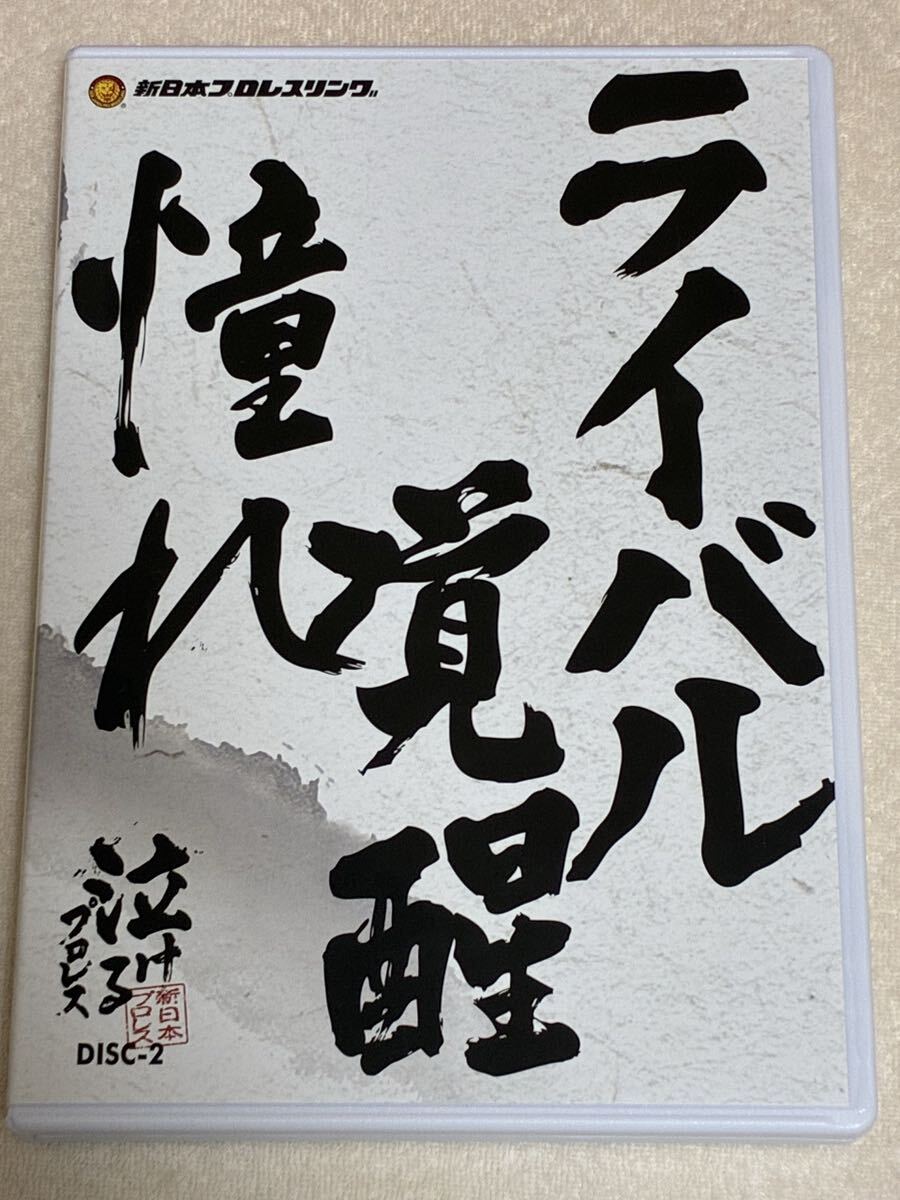 新日本プロレスリング
ライバル
覚醒
憧れ
泣ける
プロレス
新日本
プロレス
DISC-2